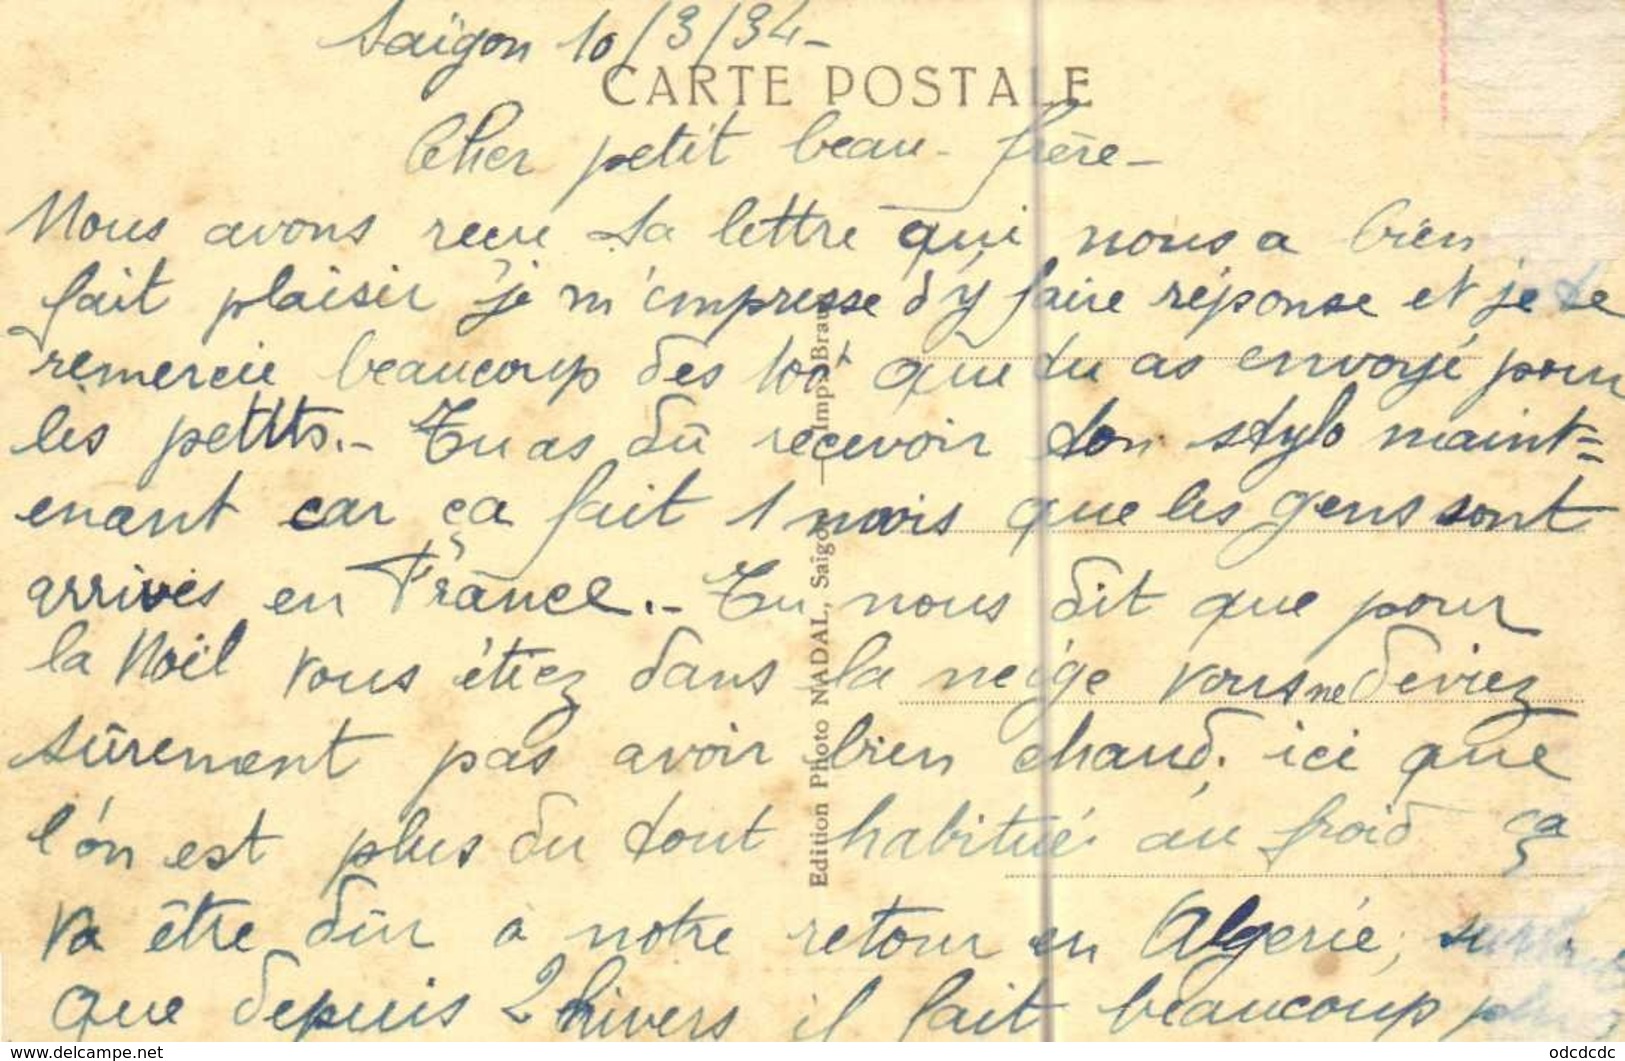 Saïgon 10/3/34-
CARTE POSTALE
Cher petit beau-frère-
Nous avons reçu ta lettre qui nous a bien
fait plaisir je m'empresse d'y faire réponse et je te
remercie beaucoup des 100f que tu as envoyé pour
les petits.- Tu as dû recevoir ton stylo maint=
enant car ça fait 1 mois que les gens sont
arrivés en France.- Tu nous dit que pour
la Noël vous étiez dans la neige vous ne deviez
sûrement pas avoir bien chaud. ici que
l'on est plus du tout habitué au froid ça
va être dûr à notre retour en Algerie, surtout
que depuis 2 hivers il fait beaucoup plus
Edition Photo NADAL, Saigon — Imp. Braun
odcdcdc
www.delcampe.net